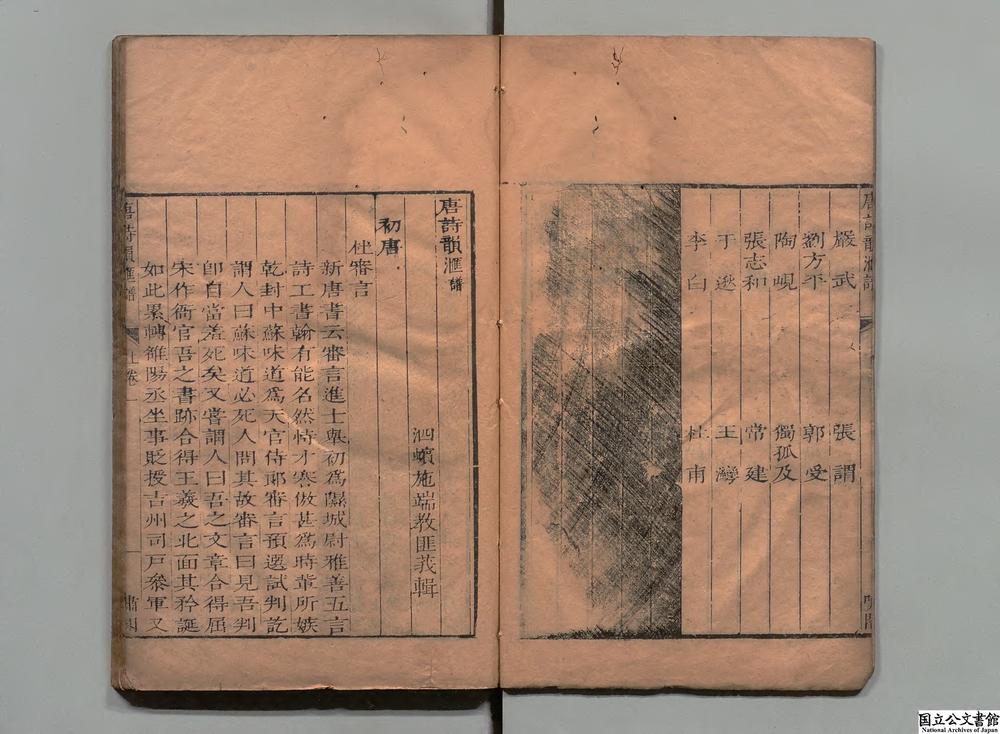 嚴武　張謂
劉方平　郭受
陶峴　獨孤及
張志和　常建
于逖　王灣
李白　杜甫
唐詩韻滙譜
泗蠙施端教匪莪輯
初唐
杜審言
新唐書云審言進士舉初爲隰城尉雅善五言
詩工書翰有能名然恃才謇傲甚爲時輩所嫉
乾封中蘇味道爲天官侍郞審言預選試判訖
謂人曰蘇味道必死人問其故審言曰見吾判
卽自當羞死矣又嘗謂人曰吾之文章合得屈
宋作衙官吾之書跡合得王羲之北面其矜誕
如此累轉雒陽丞坐事貶授吉州司戸叅軍又
唐詩韻滙譜　上卷
国立公文書館
National Archives of Japan